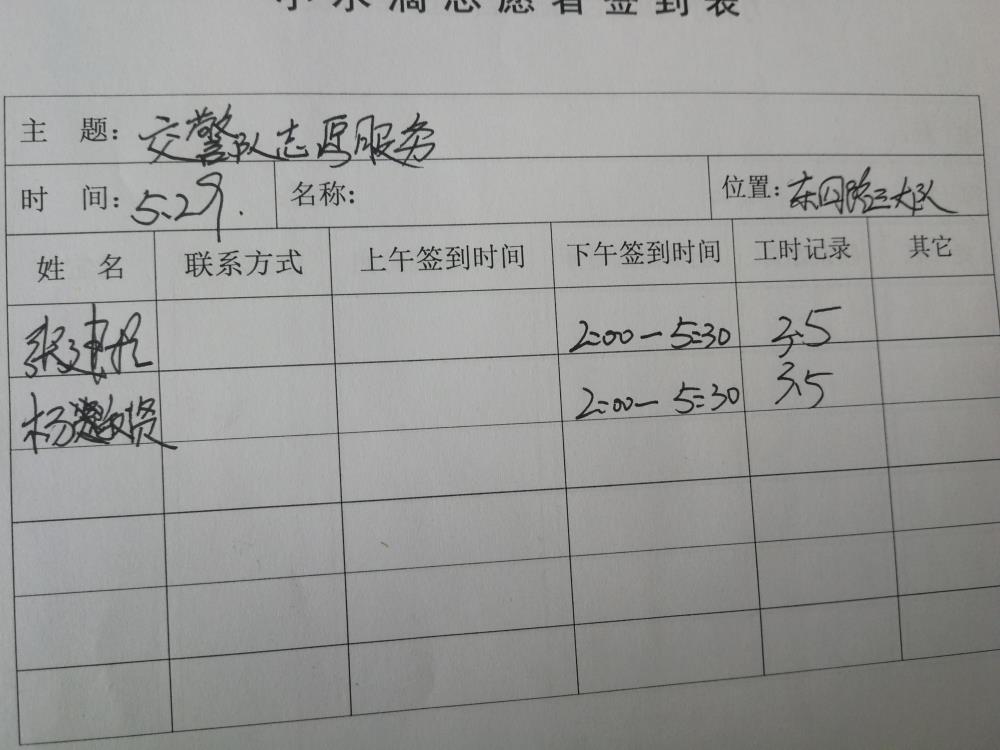 小水滴志愿者签到表
主 题: 交警队志愿服务
时 间: 5.29. 名称: 位置: 东风路三大队
姓 名 联系方式 上午签到时间 下午签到时间 工时记录 其它
张建 2:00-5:30 3.5
杨 2:00-5:30 3.5